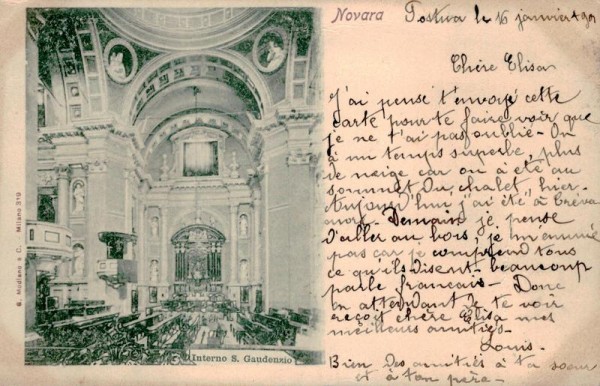 Novara
Postua le 16 janvier 1901
Chère Elisa
J'ai pensé t'envoyé cette
carte pour te faire voir que
je ne t'ai pas oublié - On
à un temps superbe, plus
de neige car on a été au
sommet "Du chalet" hier.
Aujourd'hui j'ai été à Créva
more. Demain je pense
d'aller au bois, je m'ennuie
pas car je comprend tous
ce qu'ils disent - beaucoup
parle français - Donc
En attendant de te voir
reçoit chère Elisa mes
meilleurs amitiés -
Louis -
Bien des amitiés à ta soeur
et à ton père -
Interno S. Gaudenzio
G. Modiano e C., Milano 319